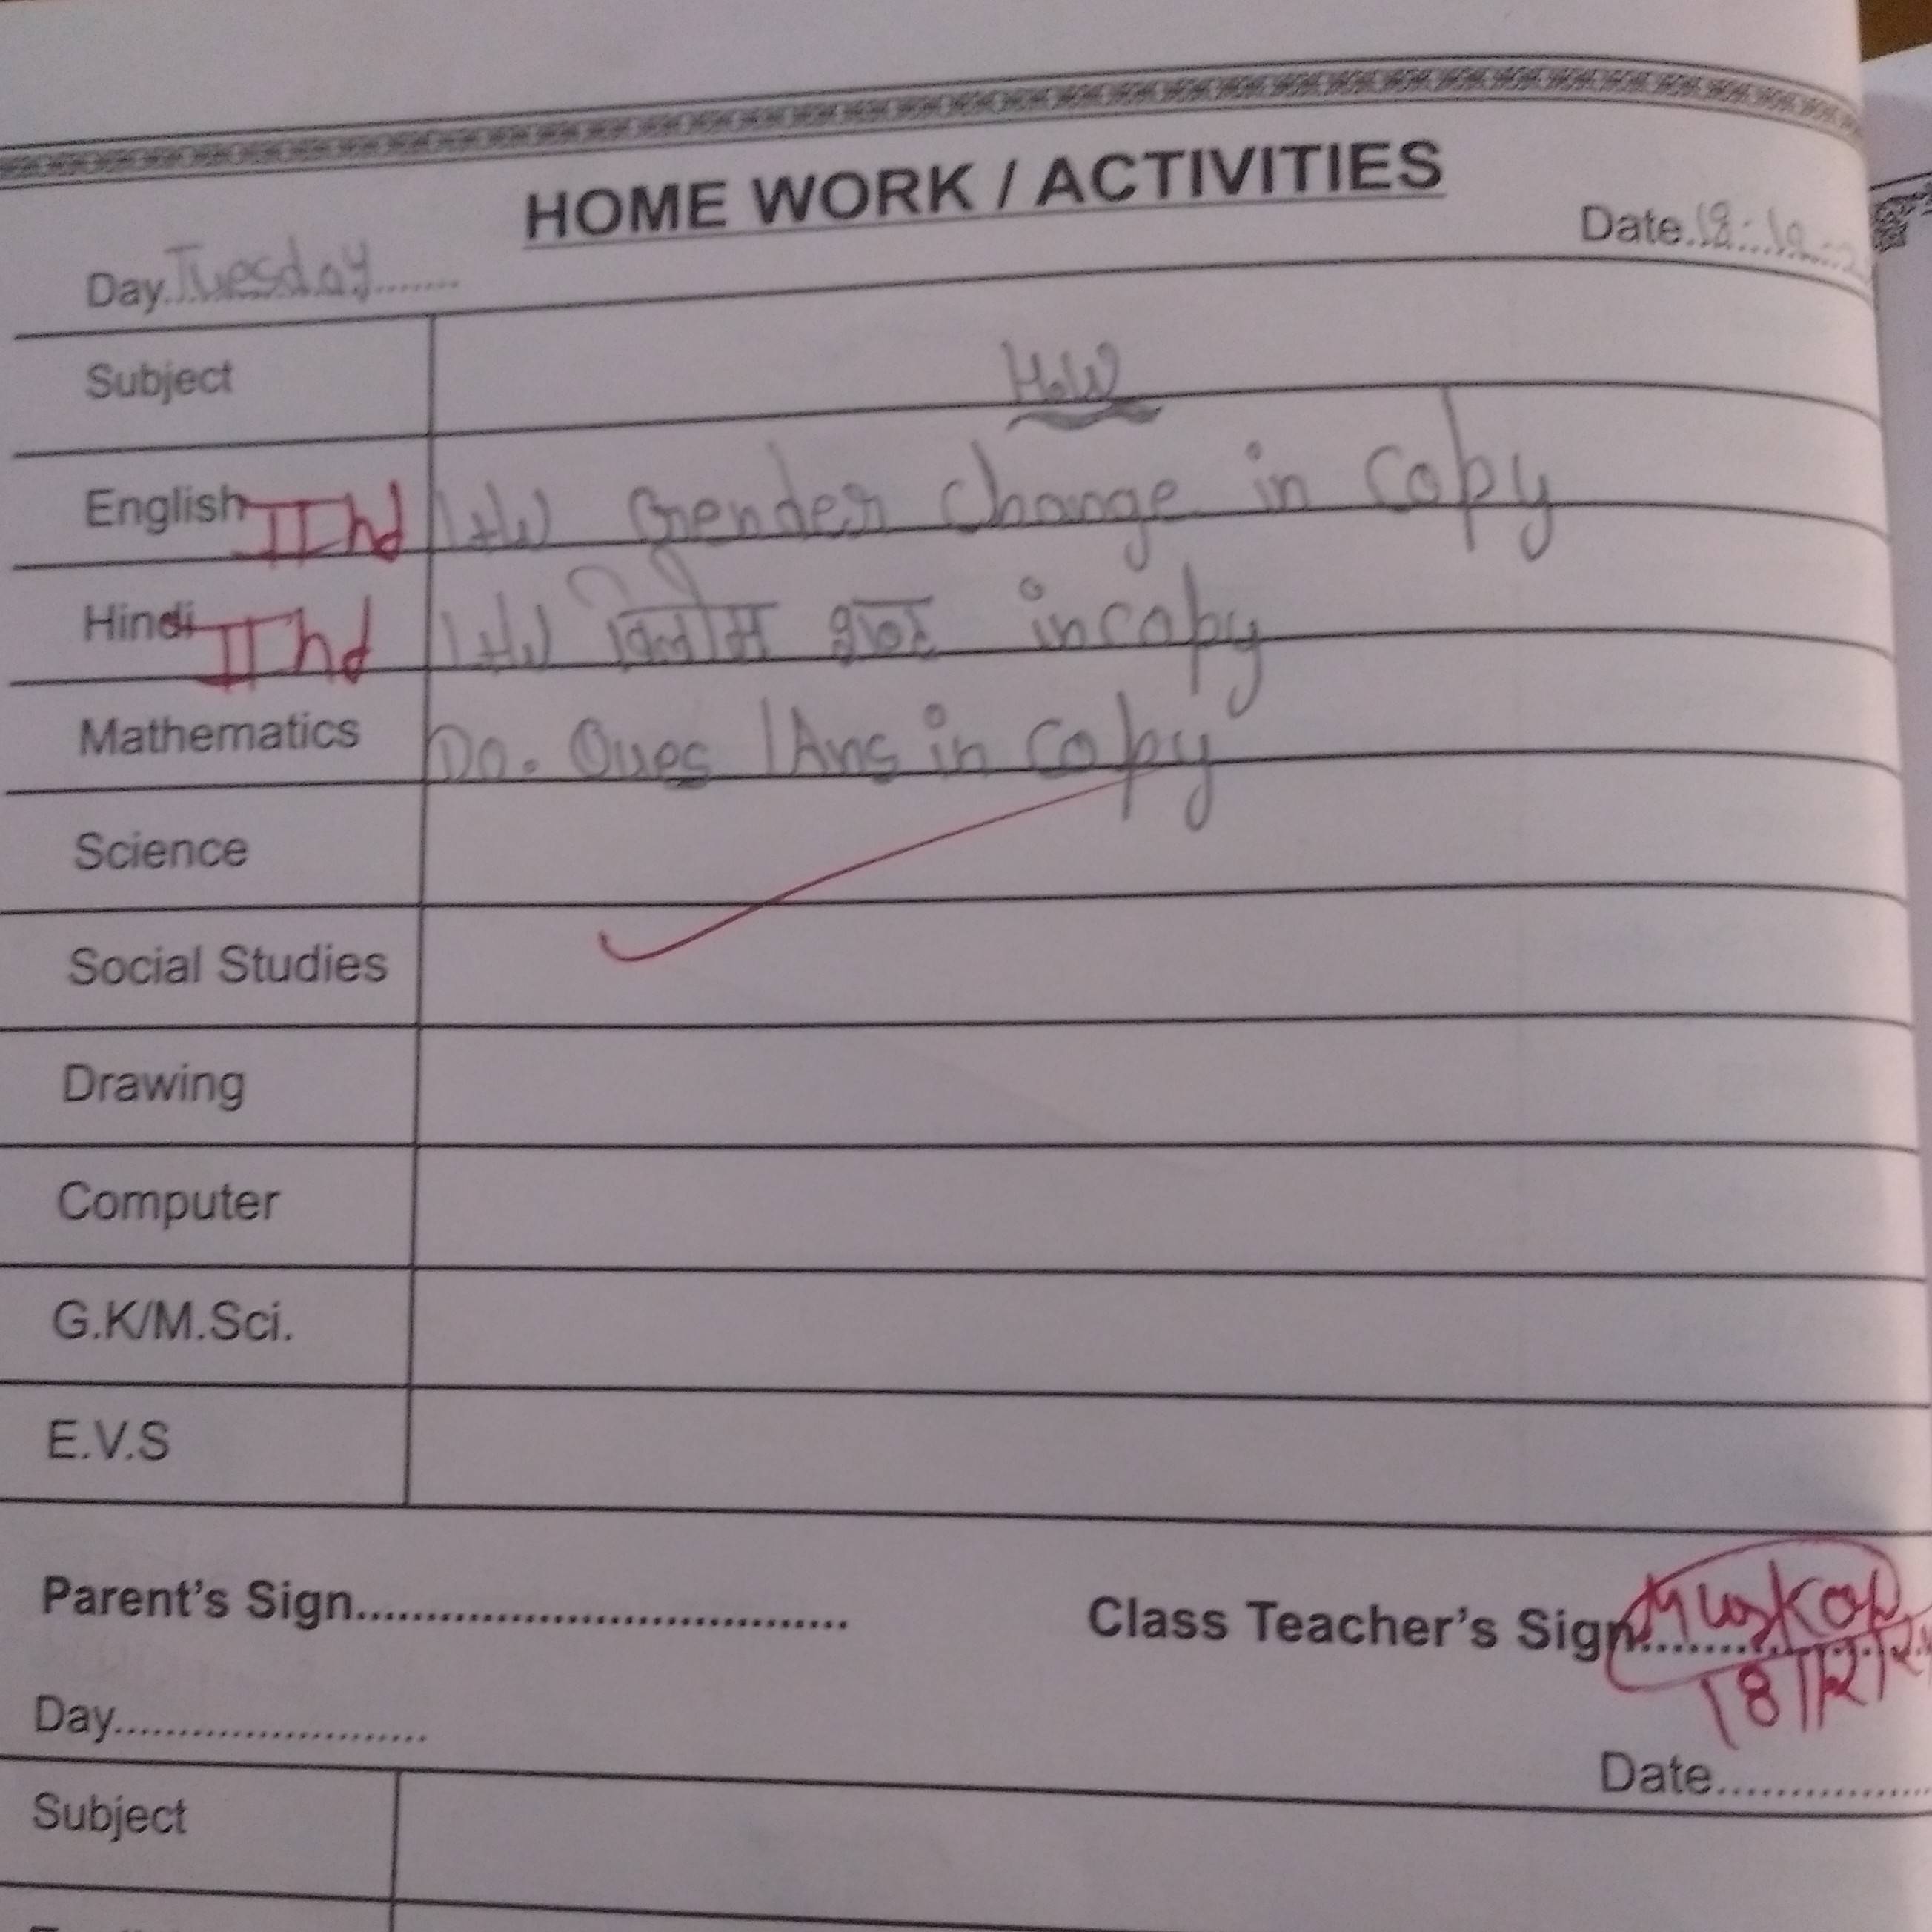 HOME WORK / ACTIVITIES
Day Tuesday Date 18-12-
Subject H.W
English IInd H/W Gender Change in Copy
Hindi IInd H/W विलोम शब्द in copy
Mathematics Do. Ques / Ans in Copy
Science
Social Studies
Drawing
Computer
G.K/M.Sci.
E.V.S
Parent's Sign.................................... Class Teacher's Sign Muskan
18/12/2
Day.........................
Date.................
Subject